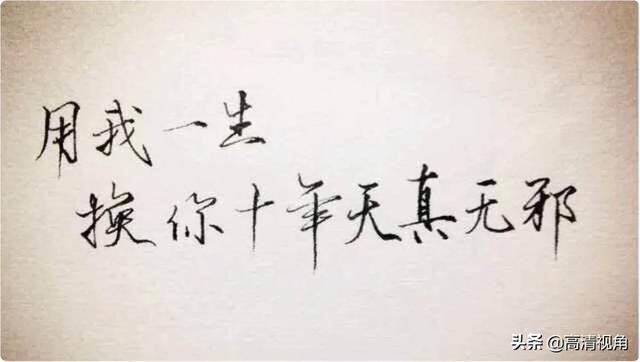 用我一生
换你十年天真无邪
头条 @高清视角